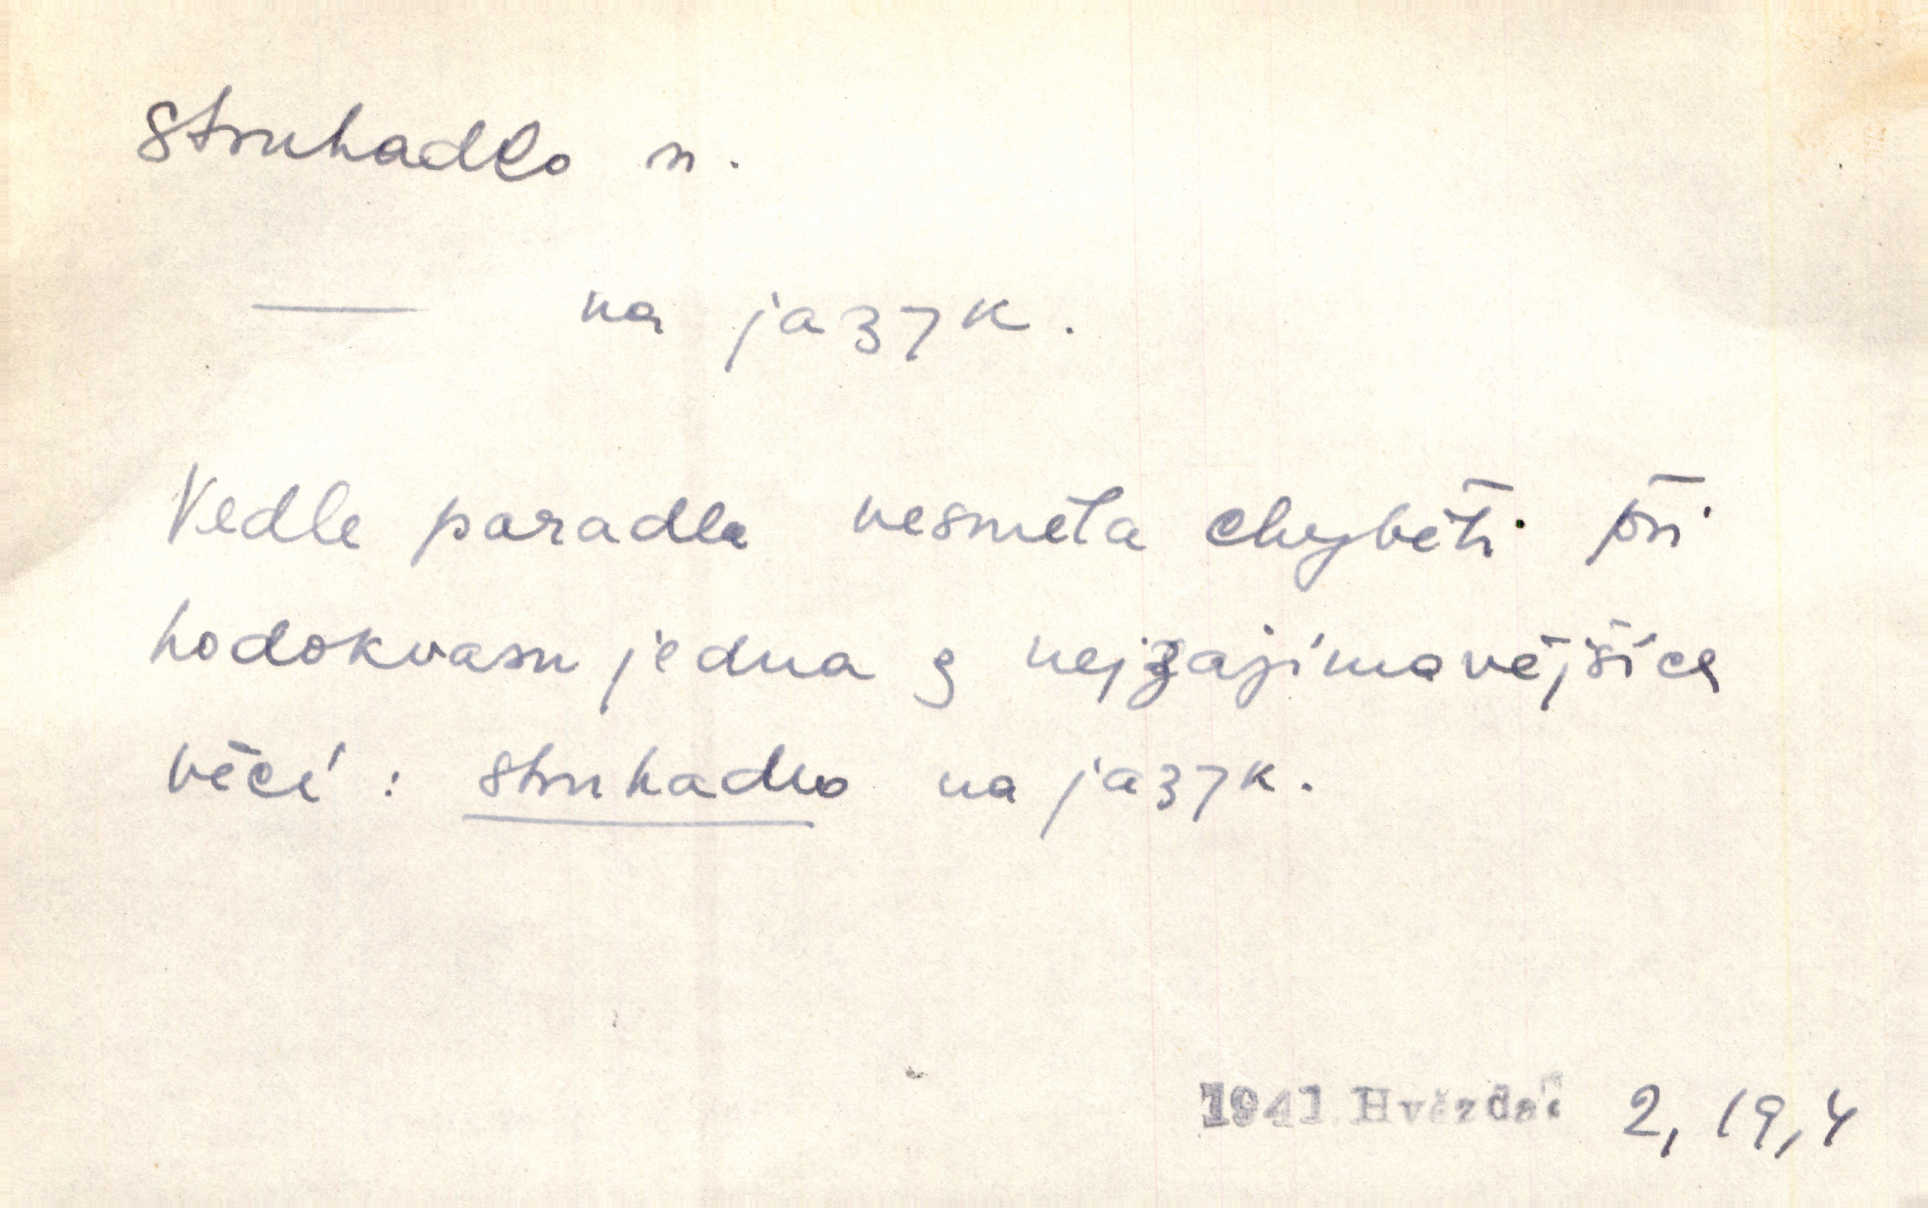 struhadlo n.
— na jazyk.
Vedle paradla nesměla chyběti při
hodokvasu jedna z nejzajímavějších
věcí: struhadlo na jazyk.
1941 Hvězda 2, 19, 4